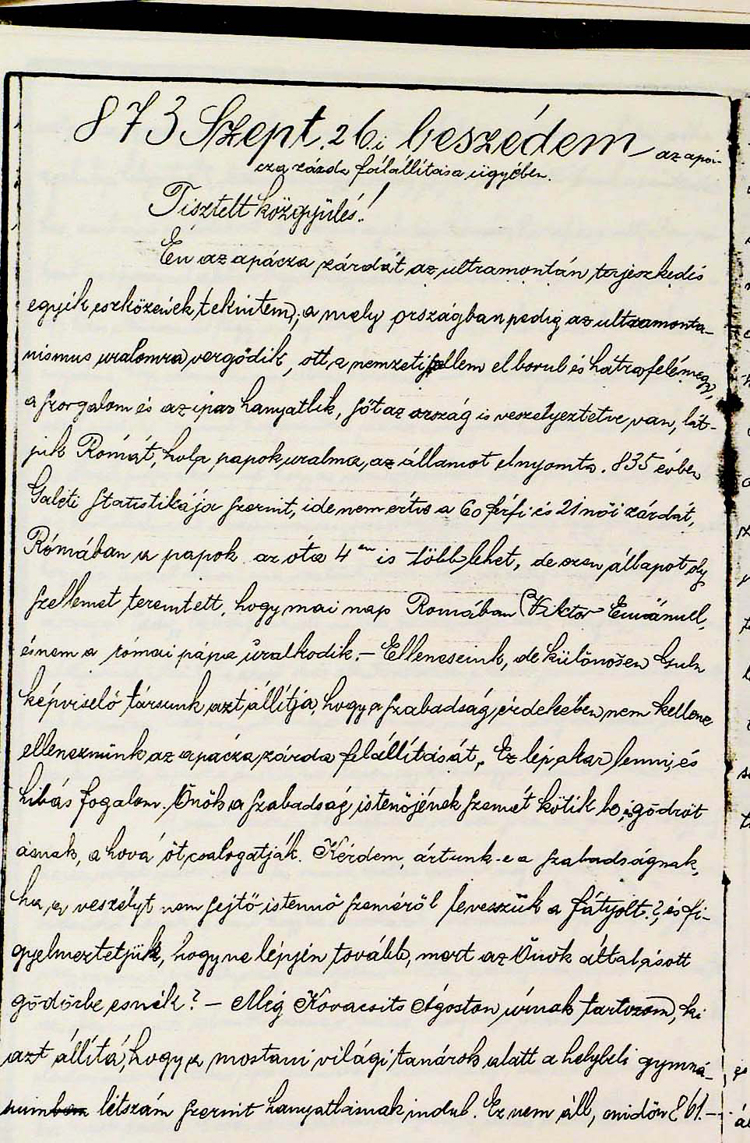 873 Szept. 26i beszédem az apá-
cza zárda fölállítása ügyében.
Tisztelt közgyülés!
Én az apácza zárdát az ultramontán terjeszkedés
egyik eszközének tekintem; a mely országban pedig az ultramonta-
nismus uralomra vergődik, ott a nemzeti jellem elborul és hátrafelé megy,
a szorgalom és az ipar hanyatlik, sőt az ország is veszélyeztetve van, lát-
juk Romát, hol a papok uralma, az államot elnyomta. 835 évben
Galéti statistikája szerint, ide nem értve a 60 férfi és 21 női zárdát,
Rómában a papok az óta 4 is több lehet, de ezen állapot oly
szellemet teremtett, hogy mai nap Romában Viktor Emánuel,
és nem a római pápa uralkodik. – Elleneseink, de különösen
képviselő társunk azt állítja, hogy a szabadság érdekében nem kellene
elleneznünk az apácza zárda felállítását. Ez lép akar lenni, és
hibás fogalom. Önök a szabadság istenőjének szemét kötik be, s gödröt
ásnak, a hová őt csalogatják. Kérdem, ártunk-e a szabadságnak,
ha, a veszélyt nem sejtő istennő szeméről levesszük a fátyolt?, és fi-
gyelmeztetjük, hogy ne lépjen tovább, mert az Önök által ásott
gödörbe esnék? – Még Kovacsits Ágoston úrnak tartozom, ki
azt állítá, hogy a mostani világi tanárok alatt a helybeli gymná-
létszám szerint hanyatlásnak indul. Ez nem áll, midőn 861.–